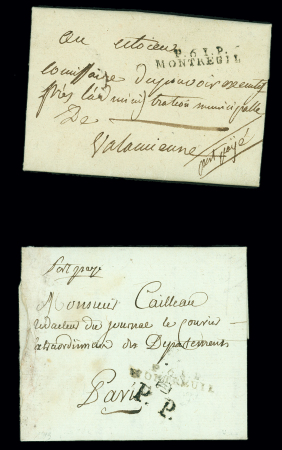 au citoyen
P.61.P.
MONTREUIL
comissaire du pouvoir executif
près l'administration municipale
De
port payé
Port payé
Monsieur Cailleau
redacteur du journal le courier
extraordinaire des Departements
Paris
P.P.